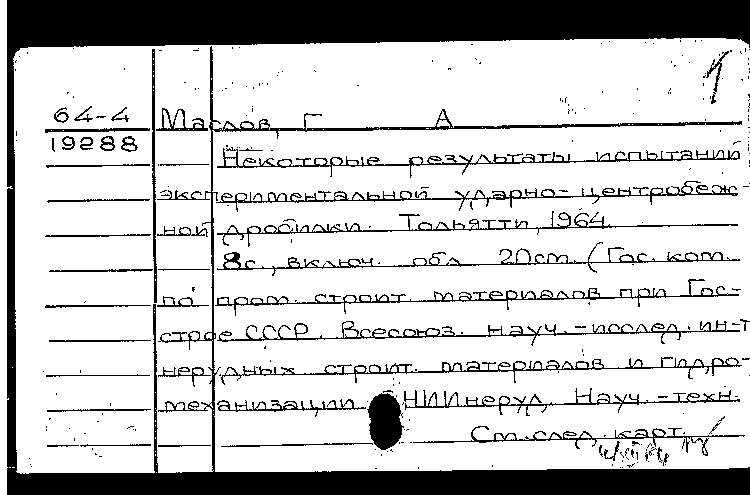 1
64-4 Маслов, Г А
19288
Некоторые результаты испытаний
экспериментальной ударно-центробеж-
ной дробилки. Тольятти, 1964.
8с., включ. обл 20см. (Гос. ком.
по пром. строит. материалов при Гос-
строе СССР. Всесоюз. науч.-исслед. ин-т
нерудных строит. материалов и гидро-
механизации НИИнеруд, Науч.-техн.
См. след. карт.